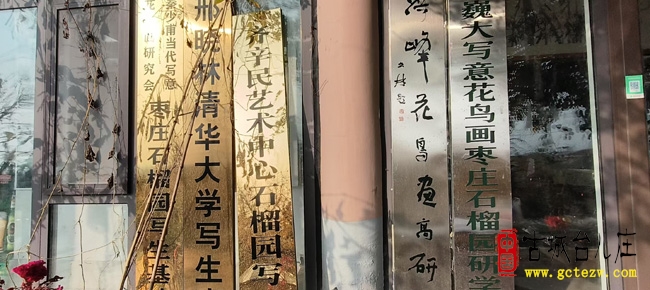 秦少甫当代写意
花鸟画研究会 枣庄石榴园写生基
邢晓林清华大学写生
齐辛民艺术中心石榴园写
峰花鸟画高研
巍大写意花鸟画枣庄石榴园研学
古城台儿庄
www.gctezw.com